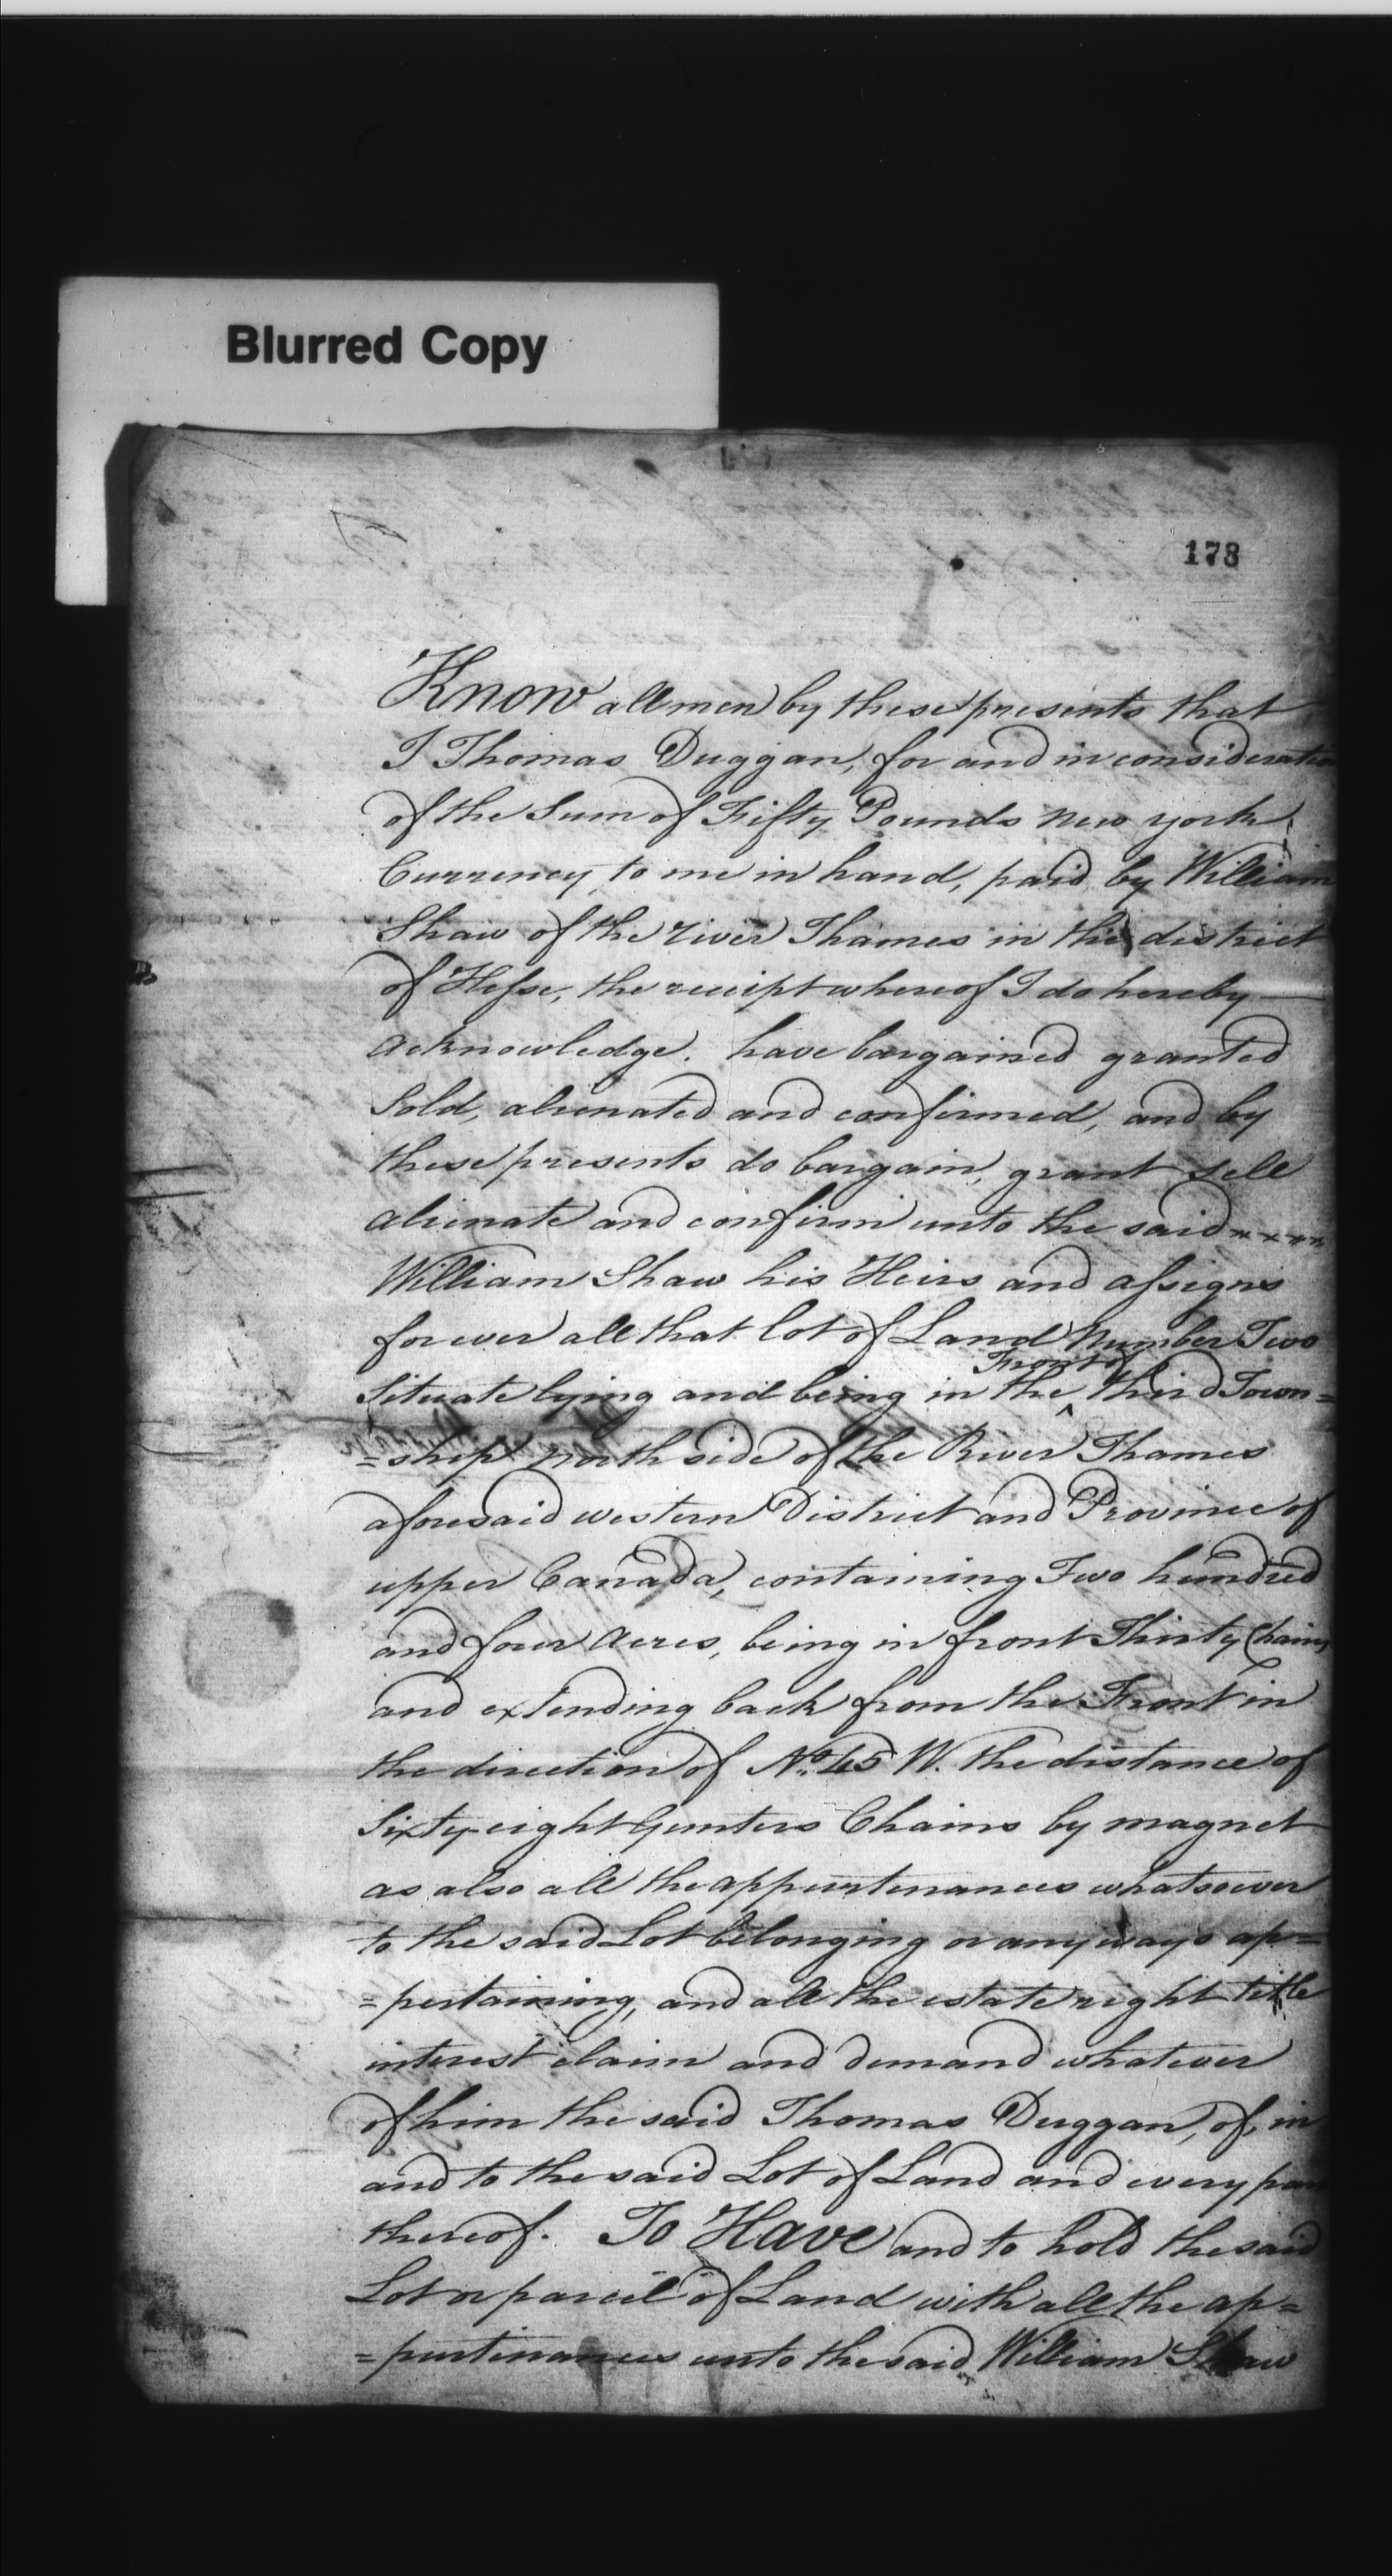 Blurred Copy
178
Know all men by these presents that
I Thomas Duggan, for and in consideration
of the Sum of Fifty Pounds New York
Currency, to me in hand, paid by William
Shaw of the river Thames in the district
of Hesse, the receipt whereof I do hereby
acknowledge. have bargained granted
Sold, alienated and confirmed, and by
these presents do bargain, grant sell
alienate and confirm unto the said
William Shaw his Heirs and assigns
for ever all that lot of Land Number Two
Front of
Situate lying and being in the ^ third Town=
=ship north side of the River Thames
aforesaid western District and Province of
upper Canada, containing Two hundred
and four Acres, being in front Thirty Chains
and extending back from the Front in
the direction of No. 45 W. the distance of
Sixty-eight Gunters Chains by magnet
as also all the appurtenances whatsoever
to the said Lot belonging or any ways ap=
=pertaining, and all the estate right title
interest claim and demand whatever
of him the said Thomas Duggan, of, in
and to the said Lot of Land and every part
thereof. To Have and to hold the said
Lot or parcel of Land with all the ap=
=purtinances unto the said William Shaw